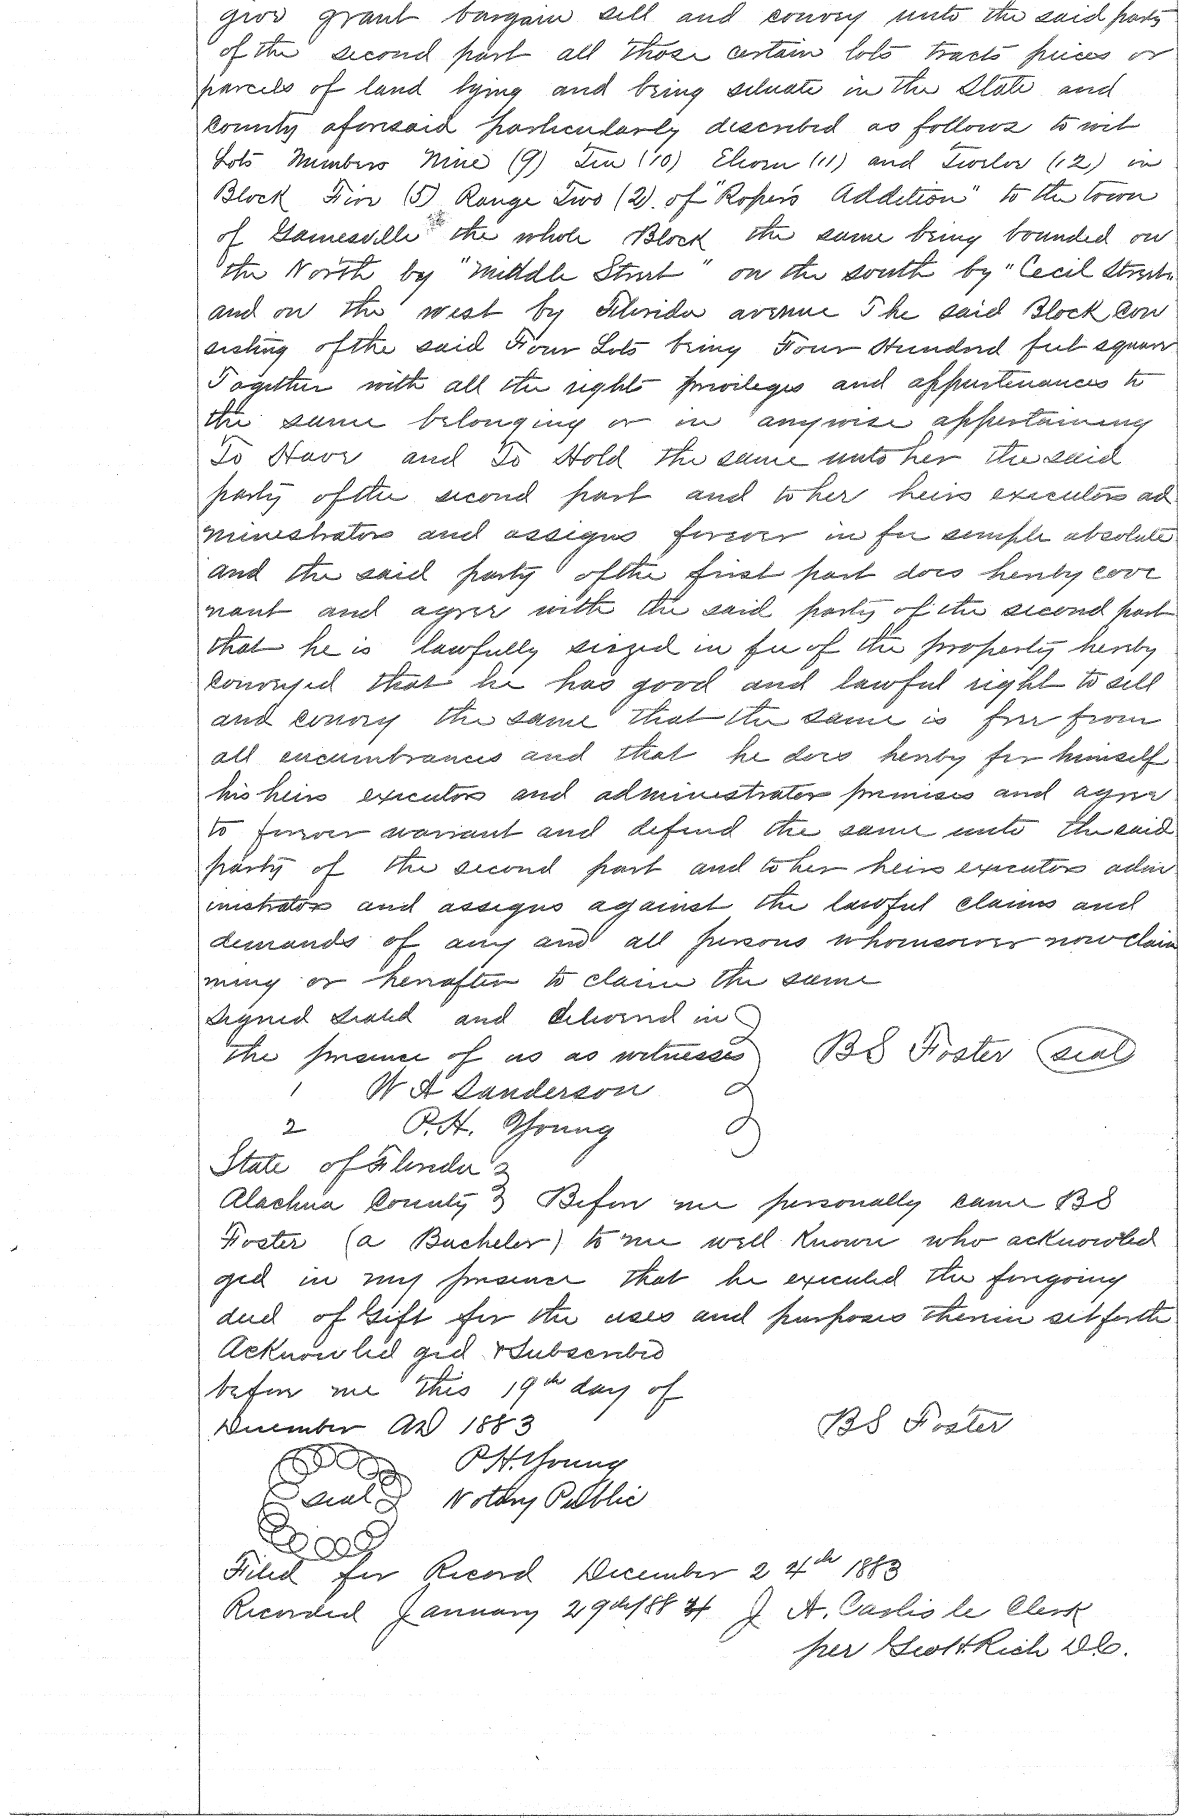 give grant bargain sell and convey unto the said party
of the second part all those certain lots tracts pieces or
parcels of land lying and being situate in the State and
County aforesaid particularly described as follows to wit
Lots Numbers Nine (9) Ten (10) Eleven (11) and Twelve (12) in
Block Five (5) Range Two (2) of "Roper's Addition" to the town
of Gainesville the whole Block the same being bounded on
the North by "Middle Street" on the south by "Cecil Street"
and on the west by Florida avenue The said Block con
sisting of the said Four Lots being Four Hundred feet square
Together with all the rights privileges and appurtenances to
the same belonging or in anywise appertaining
To Have and To Hold the same unto her the said
party of the second part and to her heirs executors ad
ministrators and assigns forever in fee simple absolute
and the said party of the first part does hereby cove
nant and agree with the said party of the second part
that he is lawfully siezed in fee of the property hereby
conveyed that he has good and lawful right to sell
and convey the same that the same is free from
all encumbrances and that he does hereby for himself
his heirs executors and administrators promises and agree
to forever warrant and defend the same unto the said
party of the second part and to her heirs executors admi
nistrators and assigns against the lawful claims and
demands of any and all persons whomsoever now claim
ming or hereafter to claim the same
Signed Sealed and delivered in
the presence of us as witnesses BS Foster seal
1 W A Sanderson
2 P.H. Young
State of Florida
Alachua County Before me personally came BS
Foster (a Bachelor) to me well Known who acknowled
ged in my presence that he executed the foregoing
deed of Gift for the uses and purposes therein set forth
Acknowled ged & Subscribed
before me this 19th day of
December AD 1883 BS Foster
P.H. Young
seal Notary Public
Filed for Record December 24th 1883
Recorded January 29th 1884 J A. Carlisle Clerk
per Geo H. Rich D.C.